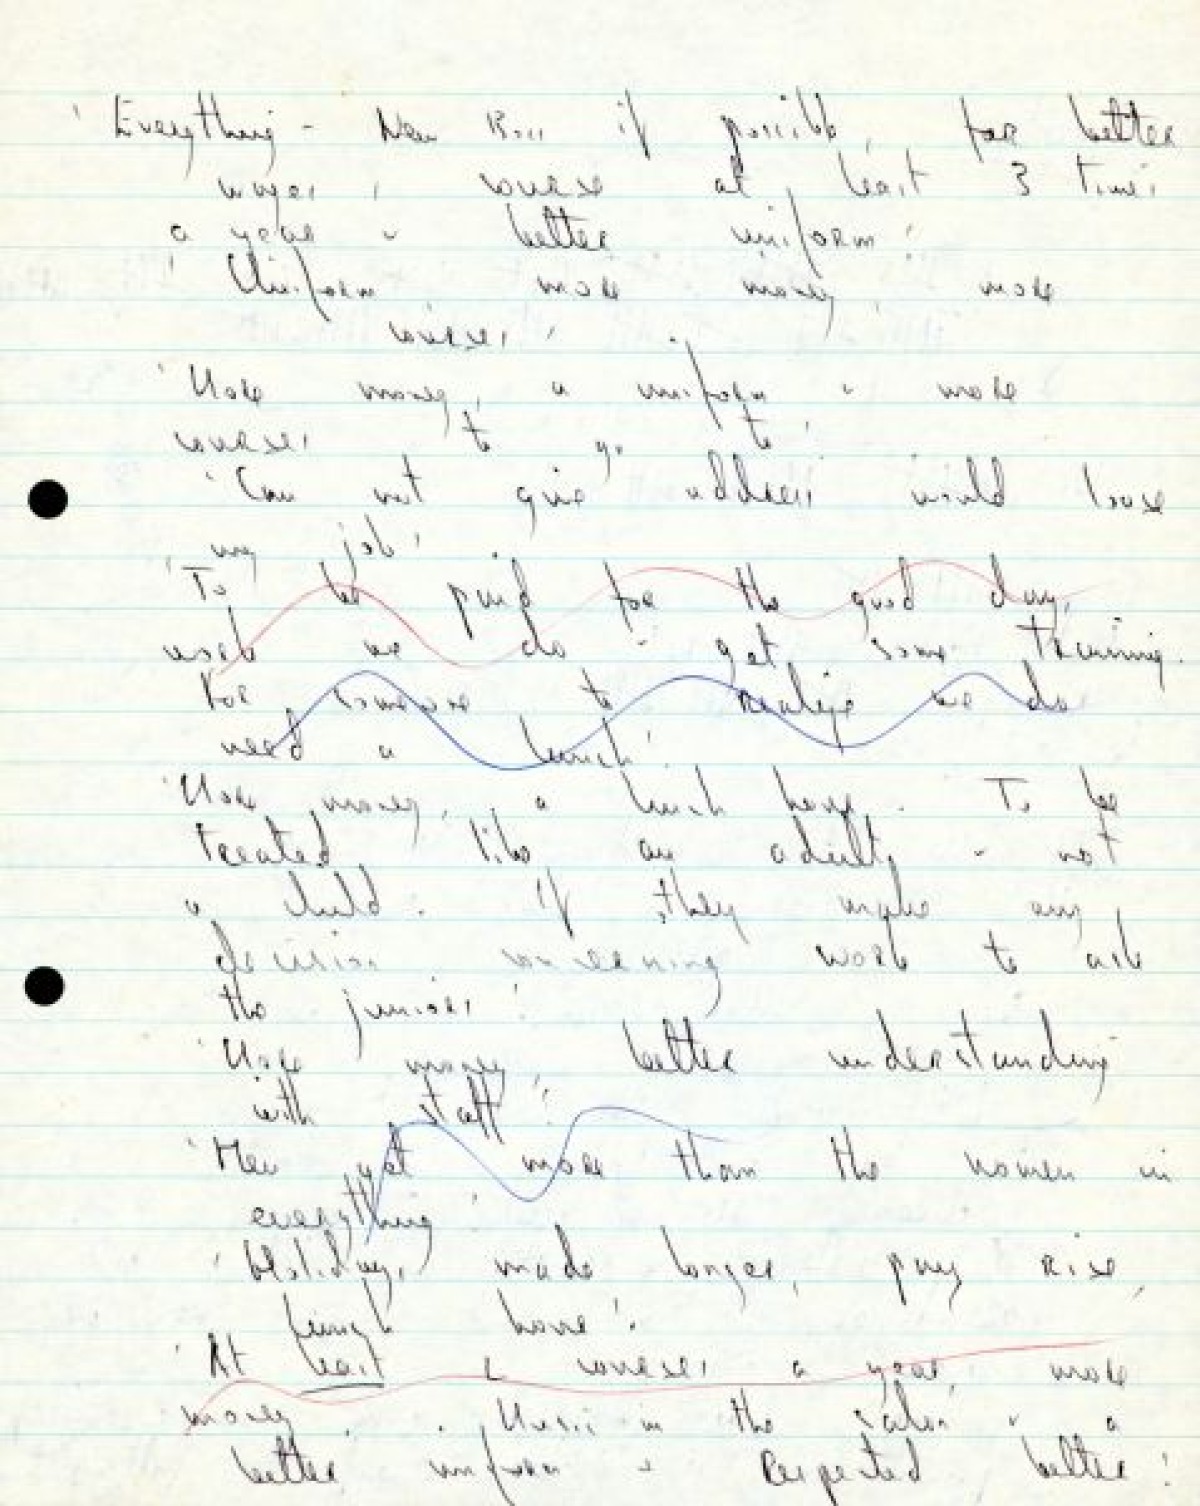 'Everything - New Boss if possible, for better
wages, course at least 3 times
a year & better uniform.'
'Uniform more money, more
courses.'
'More money, a uniform & more
courses to go to.'
'Can not give address would loose
my job.'
'To be paid for the good days
work we do & get some training.
For someone to realise we do
need a lunch.'
'More money, a lunch hour. To be
treated like an adult, & not
a child. If they make any
decision concerning work to ask
the juniors.'
'More money, better understanding
with staff.'
'Men get more than the women in
everything.'
'Holidays made longer, pay rise,
lunch hour'.
'At least 2 courses a year, more
money. Music in the salon & a
better uniform & respected better.'